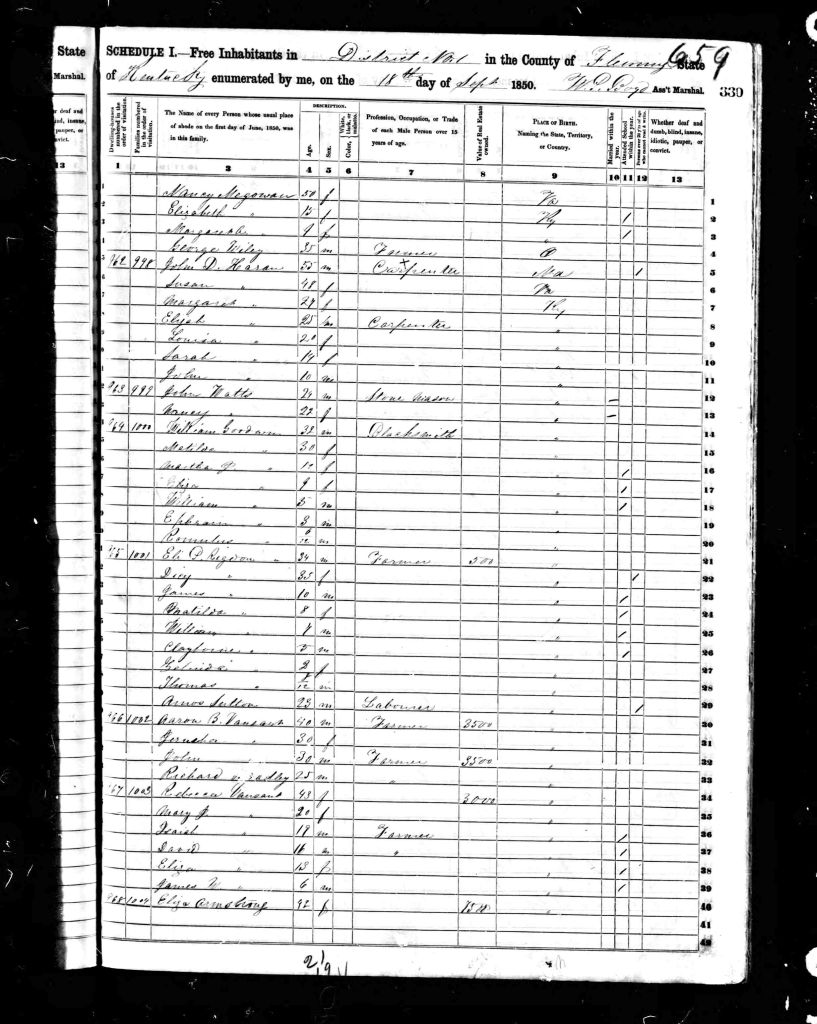 State
Marshal.
659
SCHEDULE I.—Free Inhabitants in District No 1 in the County of Fleming State
of Kentucky enumerated by me, on the 18th day of Sept 1850. Ass't Marshal. 330
Dwelling-houses numbered in the order of visitation.
Families numbered in the order of visitation.
The Name of every Person whose usual place of abode on the first day of June, 1850, was in this family.
DESCRIPTION.
Age.
Sex.
Color, White, black, or mulatto.
Profession, Occupation, or Trade of each Male Person over 15 years of age.
Value of Real Estate owned.
PLACE OF BIRTH.
Naming the State, Territory, or Country.
Married within the year.
Attended School within the year.
Whether deaf and dumb, blind, insane, idiotic, pauper, or convict.
1 2 3 4 5 6 7 8 9 10 11 12 13
Nancy Megowan 50 f Va 1
Elizabeth " 13 f Ky / 2
Margaret " 9 f " / 3
George Wiley 35 m Farmer O 4
962 998 John D. Haran 55 m Carpenter Md / 5
Susan " 48 f Va 6
Margaret " 27 f Ky 7
Elijah " 25 m Carpenter " 8
Louisa " 20 f " 9
Sarah " 14 f " 10
John " 10 m " 11
963 999 John Watts 24 m Stone Mason " 12
Nancy " 22 f " 13
964 1000 William Goodwin 33 m Blacksmith " 14
Matilda " 30 f " 15
Martha " f " / 16
Eliza " 9 f " / 17
William " 5 m " / 18
Ephraim " 3 m " 19
Romulus " m " 20
965 1001 Eli D Rigdon " 34 m Farmer 500 " 21
Dicy " 35 f " / 22
James " 10 m " / 23
Matilda " 8 f " / 24
William " 7 m " / 25
Clayborne " 5 m " / 26
" 2 f " 27
Thomas " m " 28
Amos Sutton 23 m Labourer " / 29
966 1002 Aaron B. Vansant 40 m Farmer 3500 " 30
Jerusha " 30 f " 31
John " 30 m Farmer 3500 " 32
Richard 25 m " " 33
967 1003 Rebecca Vansant 43 f 3000 " 34
Mary J. " 20 f " 35
Isaiah " 18 m Farmer " / 36
David " 16 m " " / 37
Eliza " 13 f " / 38
James W " 6 m " / 39
968 1004 Eliza Armstrong 42 f " 40
41
42